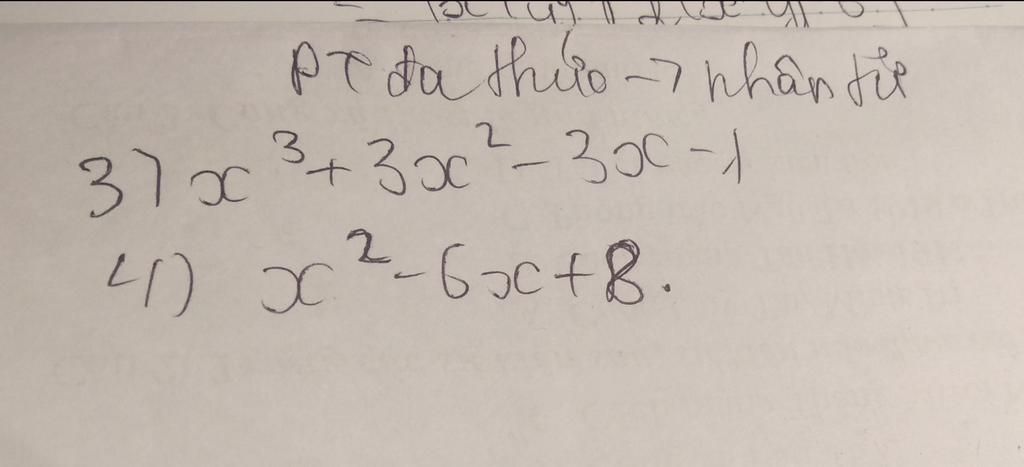 PT đa thức → nhân tử
3) x³ + 3x² - 3x - 1
4) x² - 6x + 8.